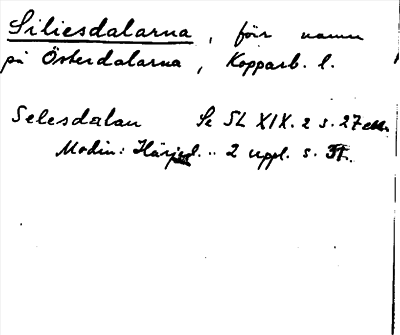 Siliesdalarna, förr namn
på Österdalarna, Kopparb. l.
Selesdalan Se SL XIX. 2 s. 27
Modin: Härjed. .. 2 uppl. s.